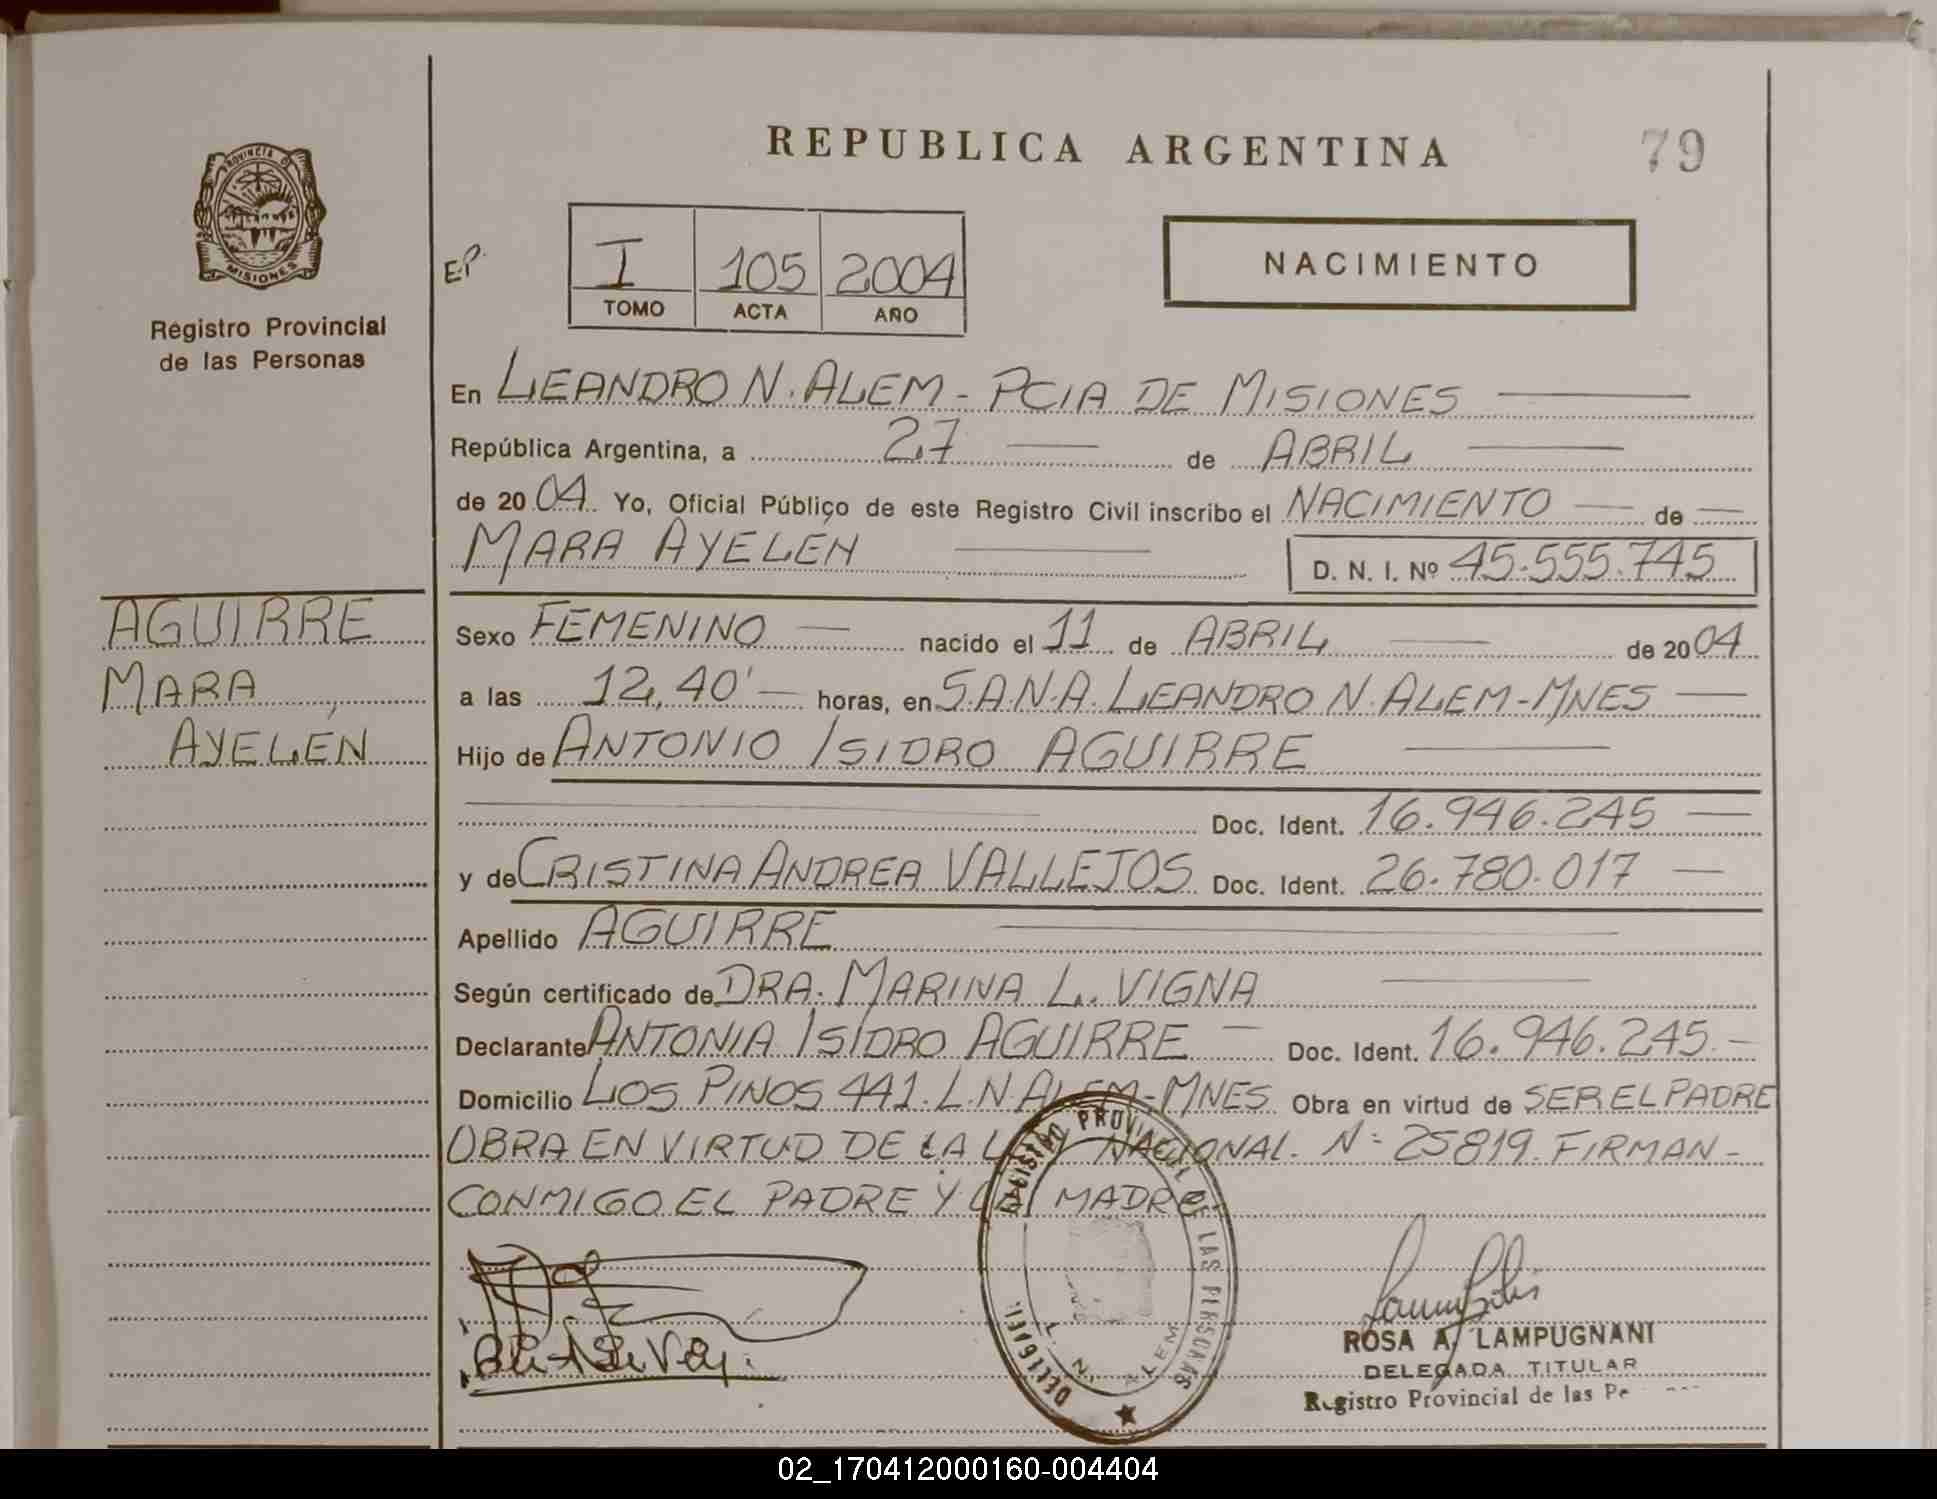 REPUBLICA ARGENTINA
79
PROVINCIA D
MISIONES
Registro Provincial
de las Personas
E.P.
I 105 2004
TOMO ACTA AÑO
NACIMIENTO
En LEANDRO N. ALEM - PCIA DE MISIONES
República Argentina, a 27 de ABRIL
de 2004. Yo, Oficial Público de este Registro Civil inscribo el NACIMIENTO de
MARA AYELÉN
D. N. I. Nº 45.555.745
AGUIRRE
MARA
AYELÉN
Sexo FEMENINO nacido el 11 de ABRIL de 2004
a las 12,40' horas, en S.A.N.A. LEANDRO N. ALEM-MNES
Hijo de ANTONIO ISIDRO AGUIRRE
Doc. Ident. 16.946.245
y de CRISTINA ANDREA VALLEJOS Doc. Ident. 26.780.017
Apellido AGUIRRE
Según certificado de DRA. MARINA L. VIGNA
Declarante ANTONIA ISIDRO AGUIRRE Doc. Ident. 16.946.245
Domicilio LOS PINOS 441. L.N.ALEM-MNES Obra en virtud de SER EL PADRE
OBRA EN VIRTUD DE LA LEY NACIONAL. Nº 25819. FIRMAN-
CONMIGO EL PADRE Y LA MADRE
REGISTRO PROVINCIAL DE LAS PERSONAS
L. N. ALEM
ROSA A. LAMPUGNANI
DELEGADA TITULAR
Registro Provincial de las Pe
02_170412000160-004404